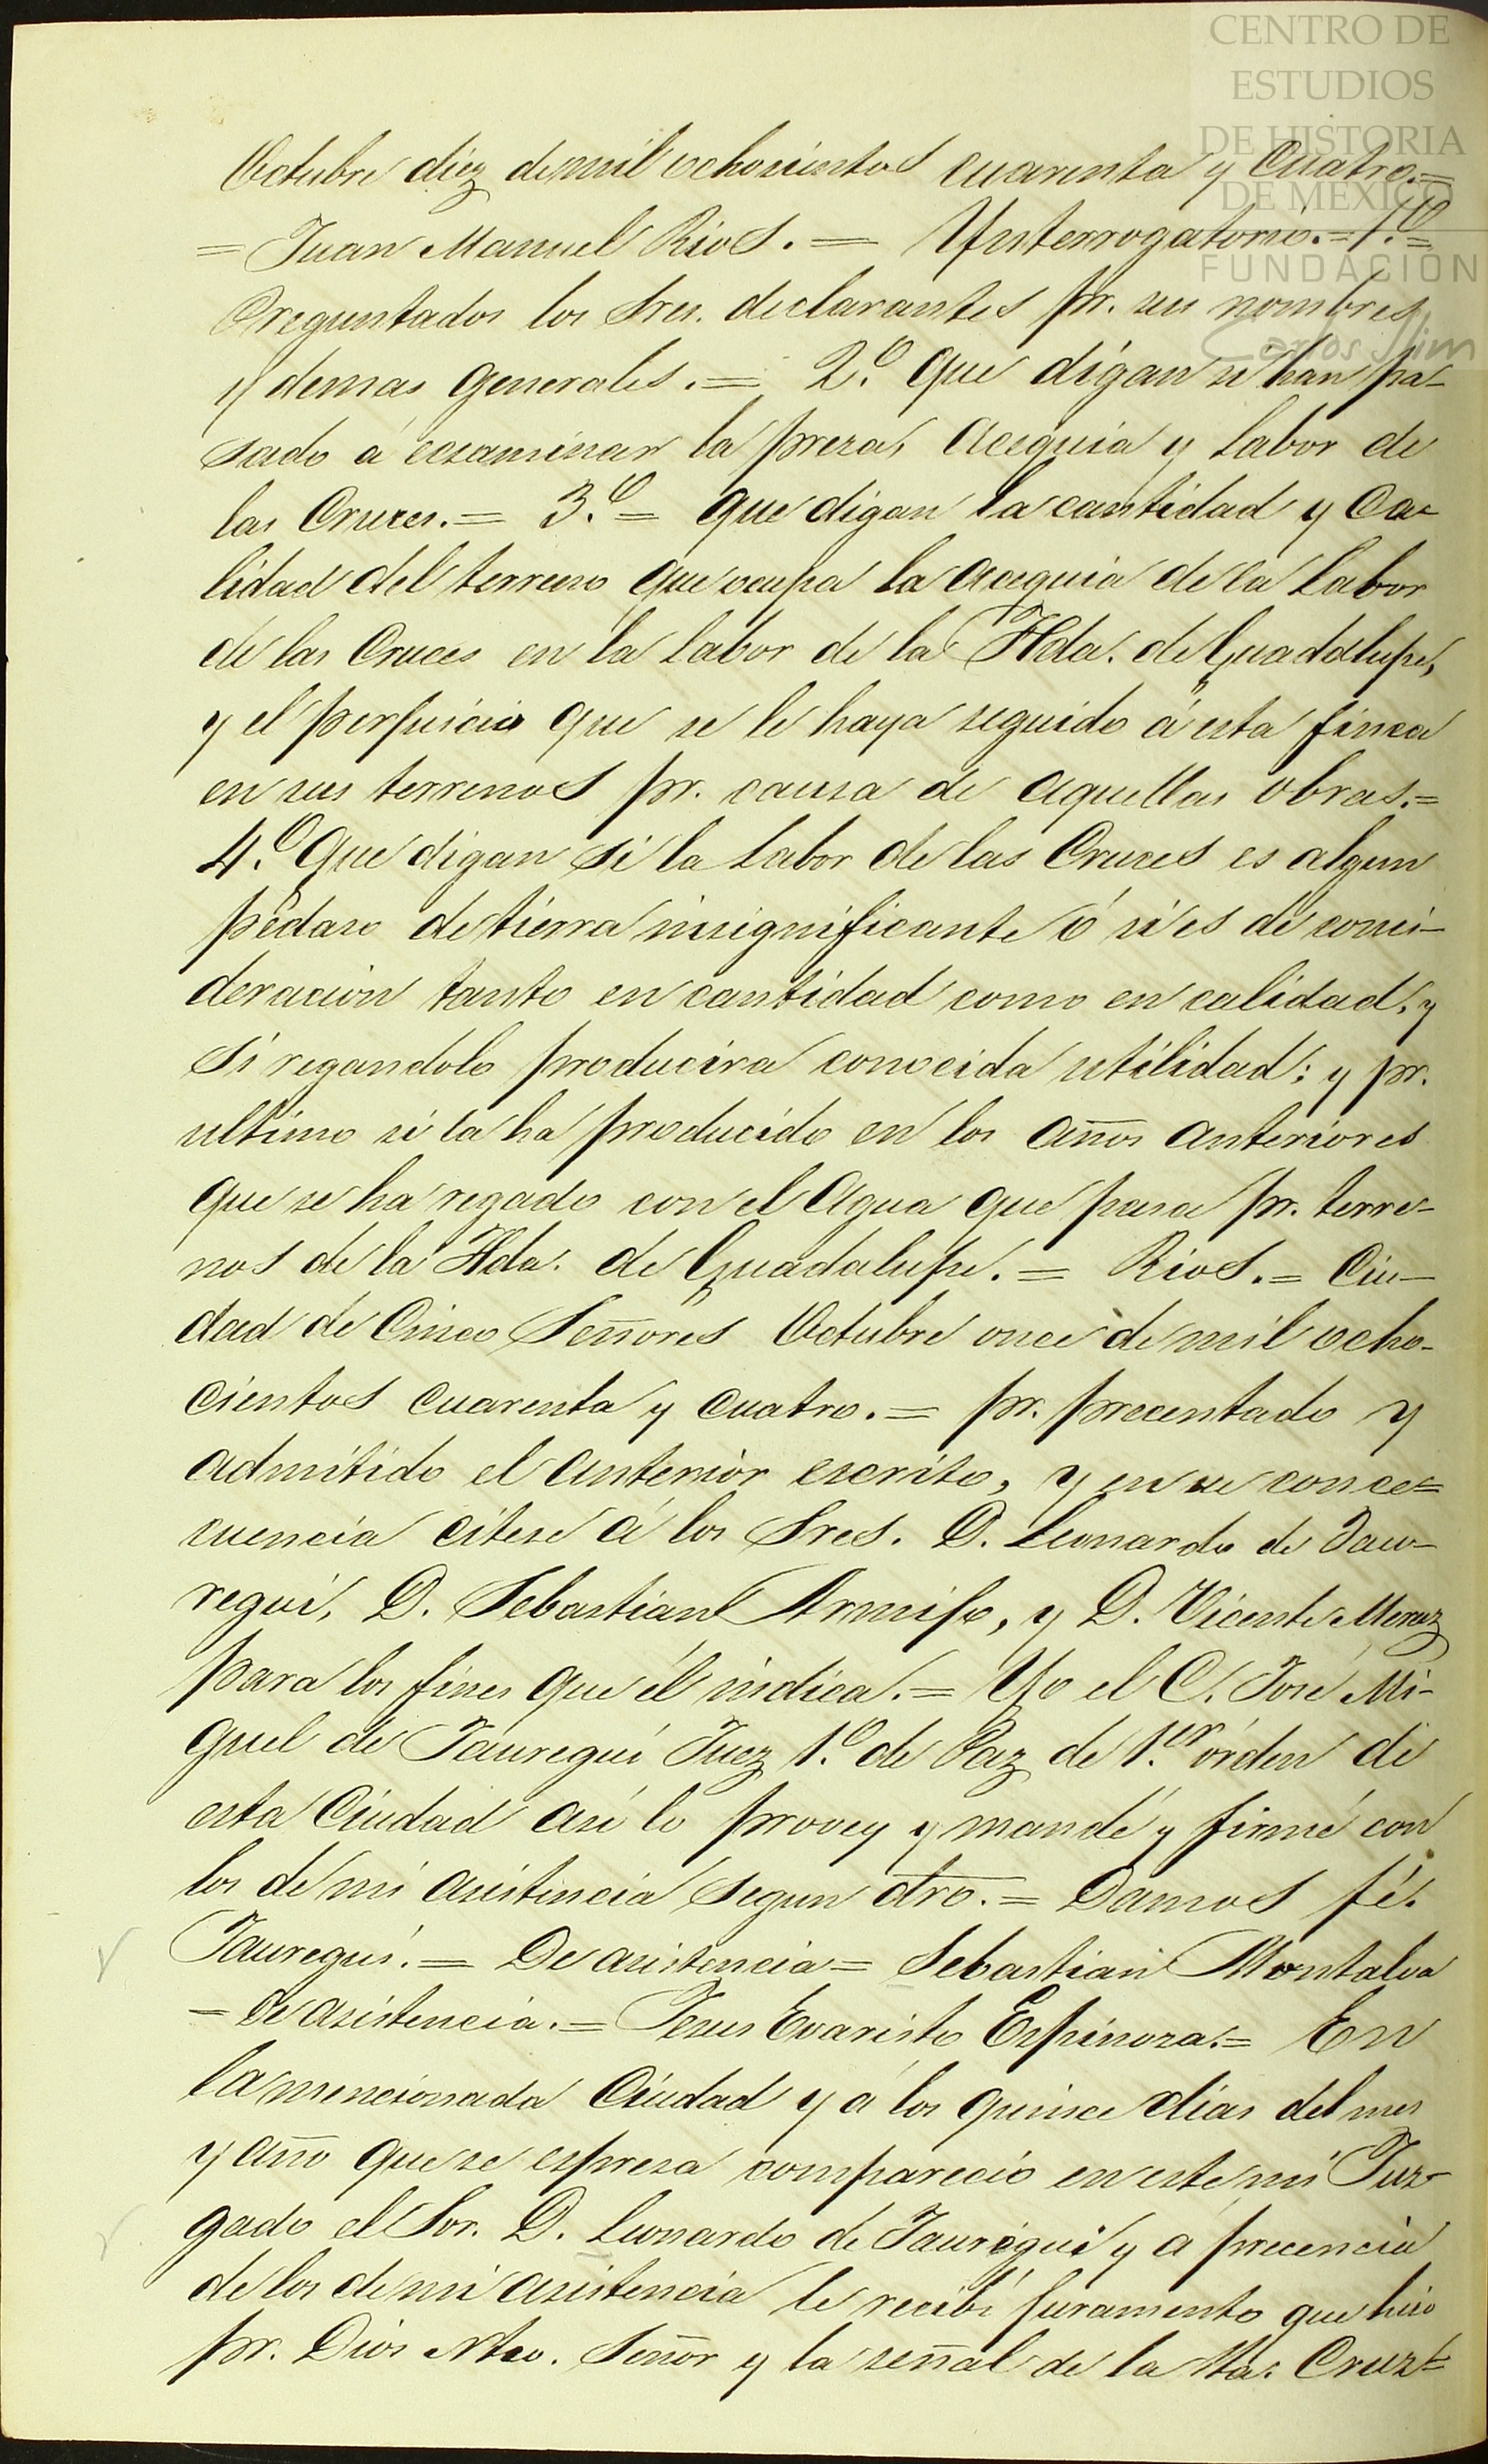 CENTRO DE
ESTUDIOS
DE HISTORIA
DE MÉXICO
FUNDACIÓN
Carlos Slim
Octubre diez de mil ochosientos cuarenta y cuatro.=
= Juan Manuel Rios. = Ynterrogatorio.= 1.º=
Preguntados los Sres. declarantes pr. sus nombres
y demas generales.= 2.º Que digan si han pa-
sado á ecsaminar la presa, acequia y labor de
las Cruces.= 3.º= Que digan la cantidad y ca-
lidad del terreno que ocupa la acequia de la Labor
de las Cruces en la labor de la Hda. de Guadalupe,
y el perjuicio que se le haya seguido á esta finca
en sus terrenos pr. causa de aquellas obras.=
4.º Que digan si la Labor de las Cruces es algun
pedaso de tierra insignificante ó si es de conci-
deracion tanto en cantidad como en calidad, y
si regandolo producira conocida utilidad: y pr.
ultimo si la ha producido en los años anteriores
que se ha regado con el Agua que pasa pr. terre-
nos de la Hda. de Guadalupe.= Rios.= Ciu-
dad de Cinco Señores Octubre once de mil ocho-
cientos cuarenta y cuatro.= pr. precentado y
admitido el anterior escrito, y en su conce=
cuencia citese á los Sres. D. Leonardo de Jau-
regui, D. Sebastian Armijo, y D. Vicente Meraz
para los fines que él indica.= Yo el C. José Mi-
guel de Jauregui Juez 1.º de Paz de 1.er órden de
esta Ciudad asi lo provey y mandé y firmé con
los de mi asistencia segun dro.= Damos fé.
Jauregui.= De asistencia= Sebastian Montalva
= de asistencia.= Jesus Evaristo Espinosa.= En
la mencionada Ciudad y á los quince dias del mes
y año que se espresa comparecio en este mi Juz-
gado el Sor. D. Leonardo de Jauregui y a precencia
de los de mi asistencia le recibi juramento que hiso
pr. Dios Ntro. Señor y la señal de la Sta. Cruz=